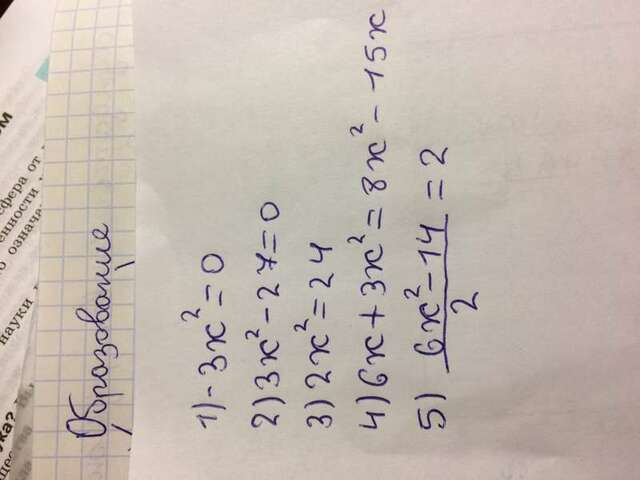 ка?
науки
сфера от
Образование
1) - 3x² = 0
2) 3x² - 27 = 0
3) 2x² = 24
4) 6x + 3x² = 8x² - 15x
5) (6x² - 14)/2 = 2